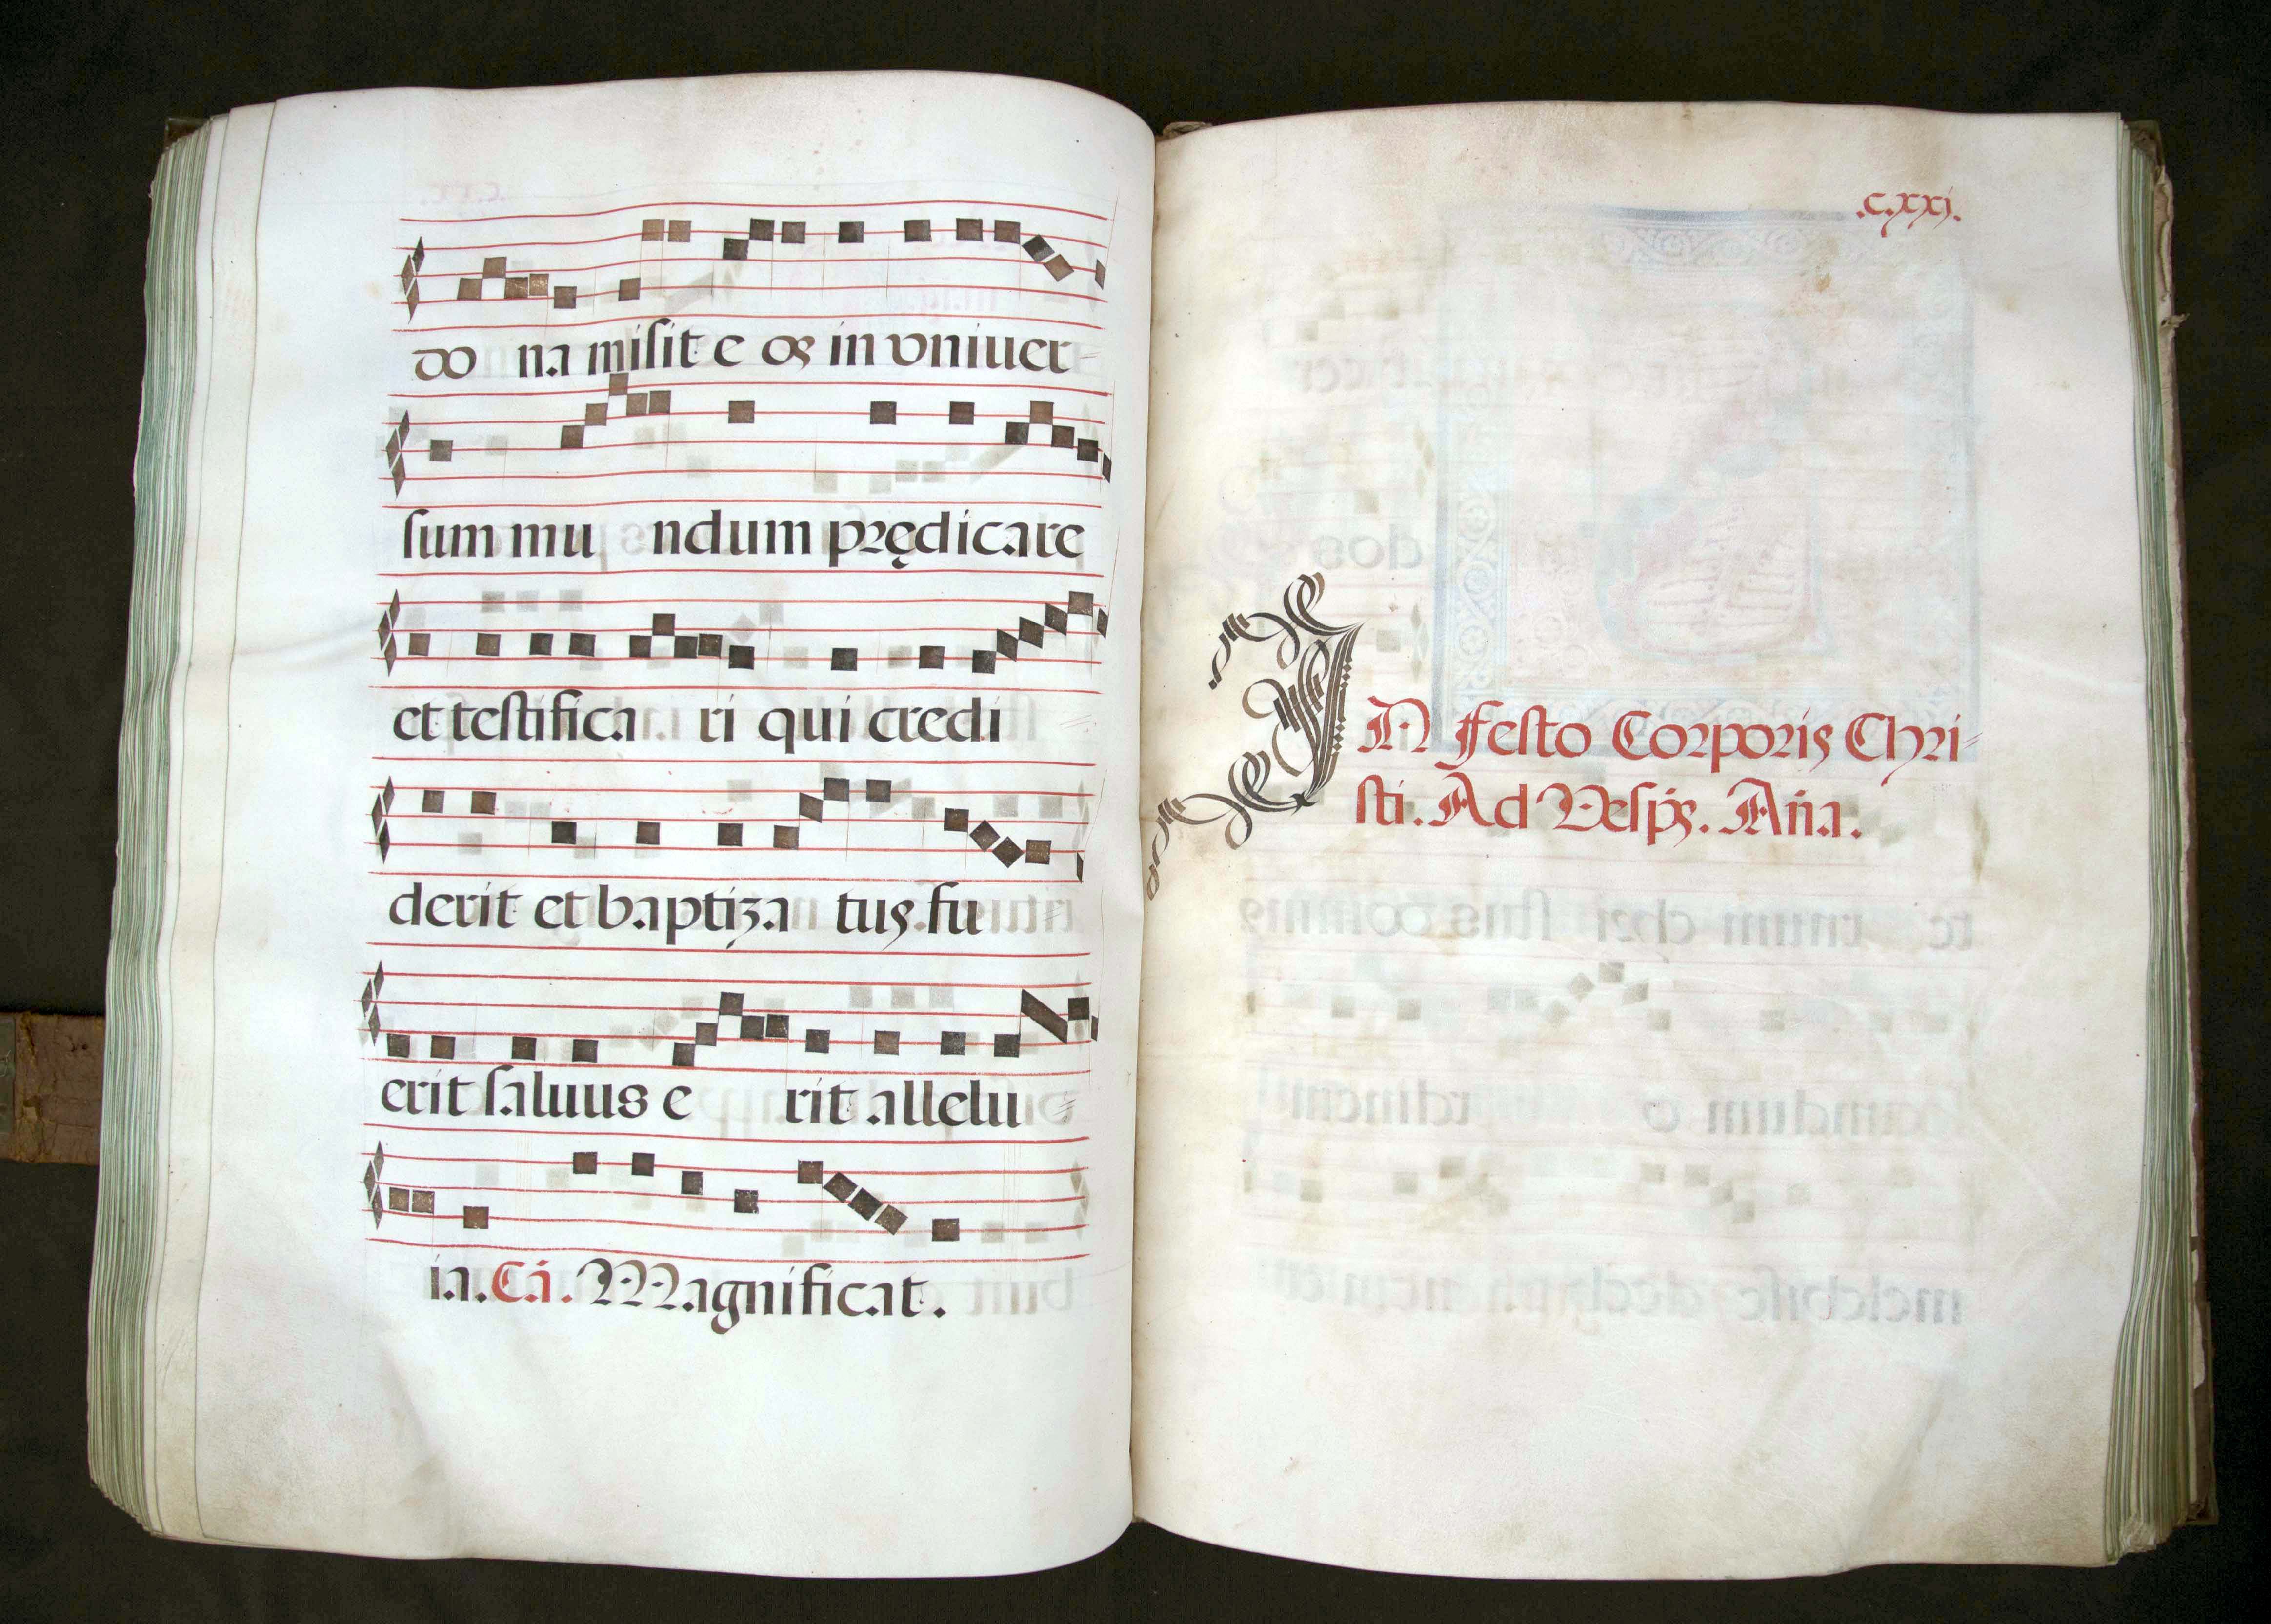 do na misit e os in vniuer-
sum mu ndum prędicare
et testifica ri qui credi
derit et baptiza tus fu
erit saluus e rit allelu
ia. Cā. Magnificat.
.c.xxj.
IN festo Corporis Chri-
sti. Ad Vesp̄s. Añа.